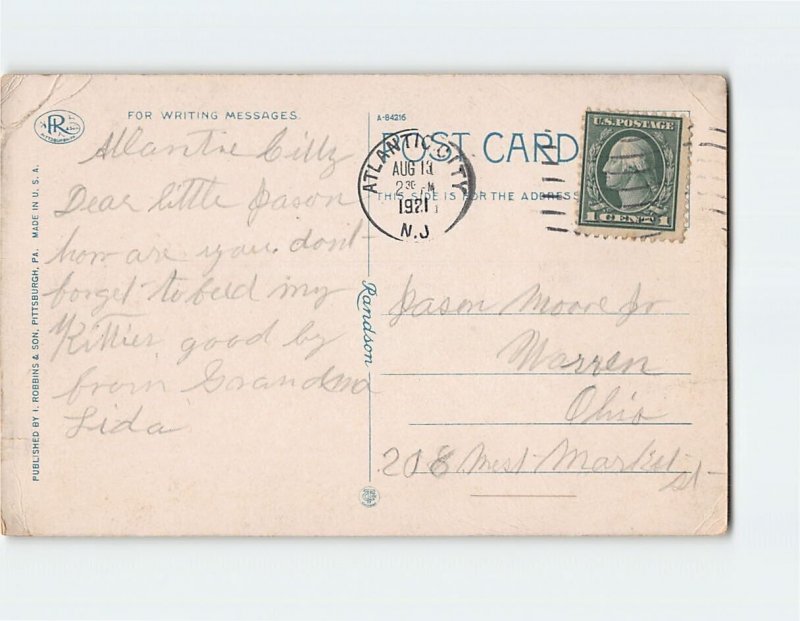 FOR WRITING MESSAGES.
Atlantic City
Dear little Jason
how are you. dont-
forget to feed my
Kitties good by
from Grandma
Lida
PUBLISHED BY I. ROBBINS & SON, PITTSBURGH, PA. MADE IN U.S.A.
Randson
A-84216
POST CARD
THIS SIDE IS FOR THE ADDRESS
ATLANTIC CITY
AUG 13
2 30 M
1921
N.J
U.S. POSTAGE
1 CENT 1
Jason Moore Jr
Warren
Ohio
208 West Market
st-